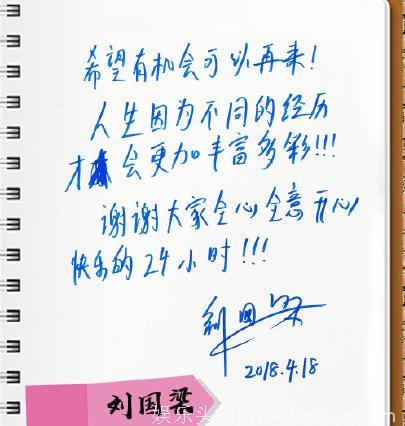 希望有机会可以再来!
人生因为不同的经历
才会更加丰富多彩!!!
谢谢大家全心全意开心
快乐的24小时!!!
刘国梁
2018.4.18
刘国梁